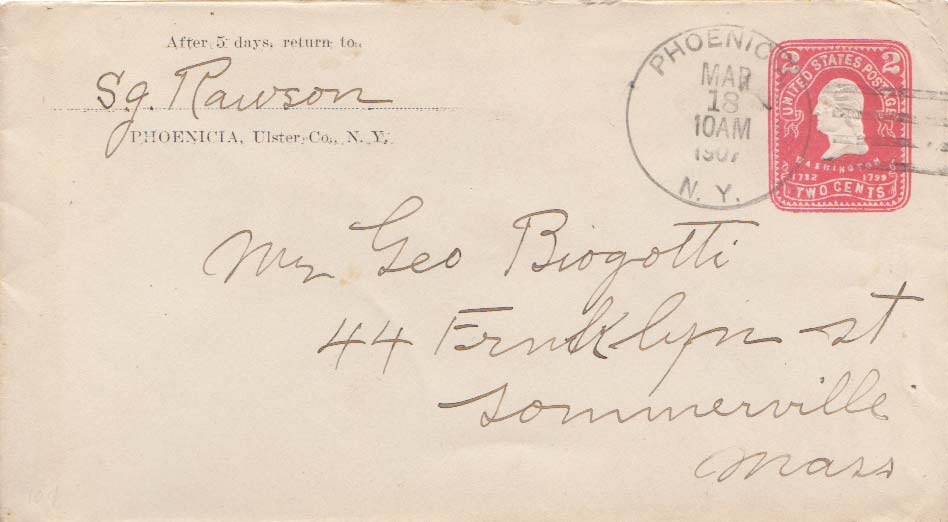 After 5 days, return to
Sg. Rawson
PHOENICIA, Ulster Co., N. Y.
PHOENICIA
MAR
18
10AM
1907
N. Y.
2 2
UNITED STATES POSTAGE
WASHINGTON
1732 1799
TWO CENTS
Mr Geo Biogotti
44 Frnklyn st
Sommerville
Mass